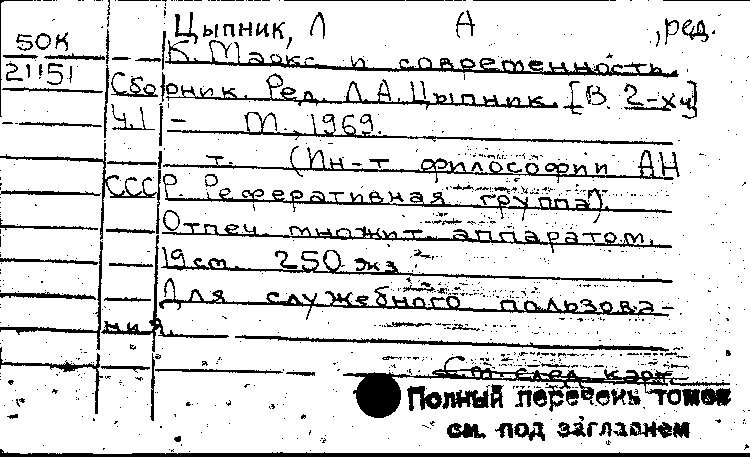 Цыпник, Л А , ред.
50К К. Маркс и современность.
21151 Сборник. Ред. Л.А. Цыпник. [В 2-х ч]
Ч.1 – М., 1969.
т. (Ин-т философии АН
СССР. Реферативная группа).
Отпеч. множит. аппаратом.
19 см. 250 экз.
Для служебного пользова-
ния.
См. след. карт.
Полный перечень томов
см. под заглавием